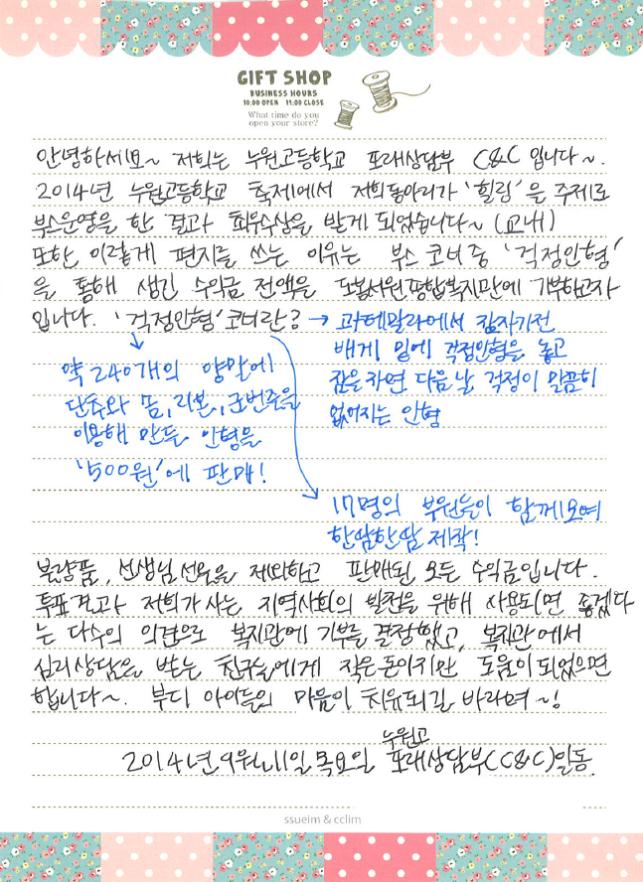 GIFT SHOP
BUSINESS HOURS
10:00 OPEN 11:00 CLOSE
What time do you
open your store?
안녕하세요~ 저희는 누원고등학교 또래상담부 C&C 입니다~.
2014년 누원고등학교 축제에서 저희동아리가 '힐링'을 주제로
부스운영을 한 결과 최우수상을 받게 되었습니다~ (교내)
또한 이렇게 편지를 쓰는 이유는 부스 코너 중 '걱정인형'
을 통해 생긴 수익금 전액을 도봉서원종합복지관에 기부하고자
입니다. '걱정인형' 코너란? → 과테말라에서 잠자기전
배게 밑에 걱정인형을 놓고
잠을 자면 다음날 걱정이 말끔히
없어지는 인형
약 240개의 양말에
단추와 솜, 리본, 군번줄을
이용해 만든 인형을
'500원'에 판매!
17명의 부원들이 함께모여
한땀한땀 제작!
불량품, 선생님 선물을 제외하고 판매된 모든 수익금입니다.
투표결과 저희가 사는 지역사회의 발전을 위해 사용되면 좋겠다
는 다수의 의견으로 복지관에 기부를 결정했고, 복지관에서
심리상담을 받는 친구들에게 작은돈이지만 도움이 되었으면
합니다~. 부디 아이들의 마음이 치유되길 바라며~!
누원고
2014년 9월 11일 목요일 또래상담부(C&C)일동.
ssueim & cclim